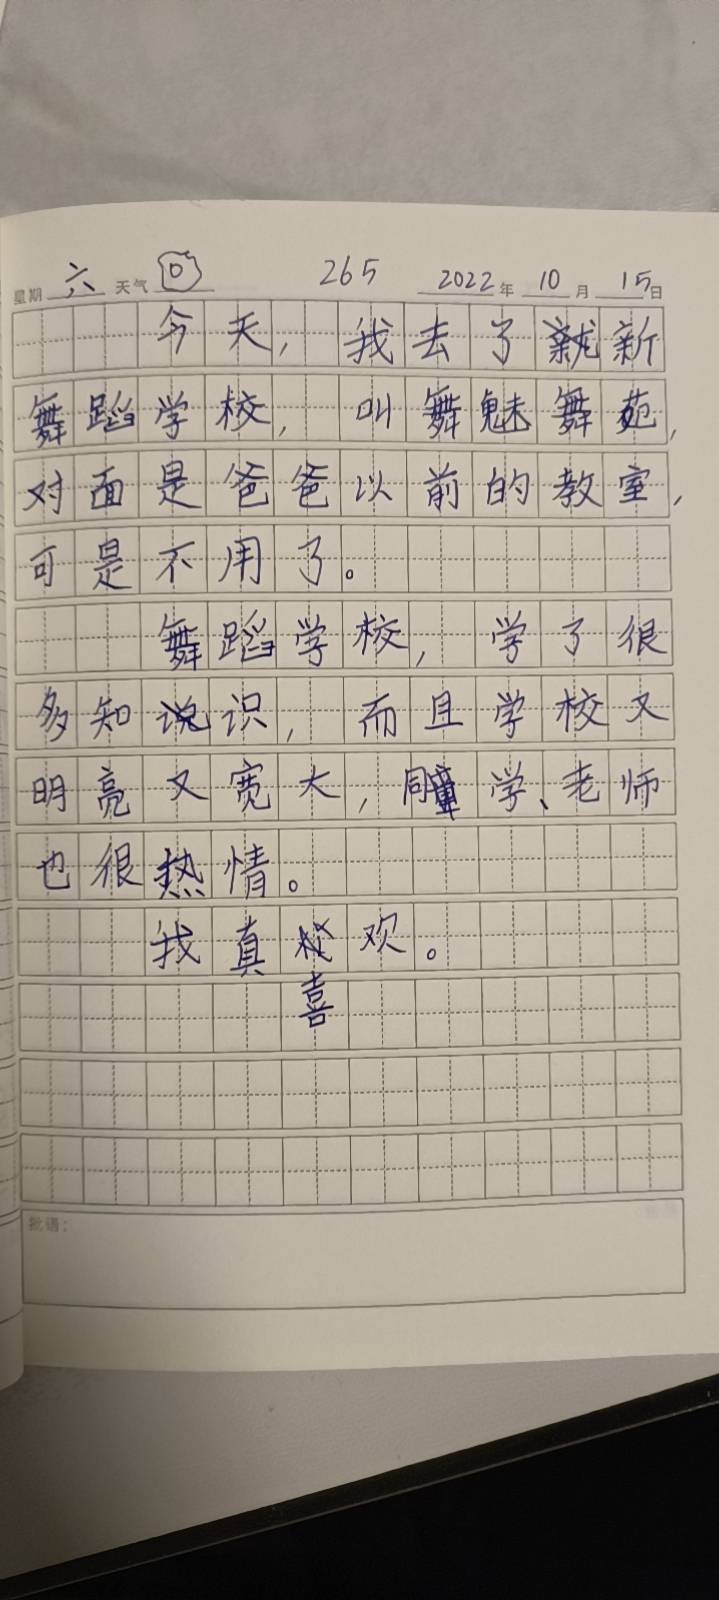 星期 六 天气 265 2022 年 10 月 15 日
今天，我去了新
舞蹈学校，叫舞魅舞苑，
对面是爸爸以前的教室，
可是不用了。
舞蹈学校，学了很
多知识，而且学校又
明亮又宽大，同学、老师
也很热情。
我真喜欢。
批语：